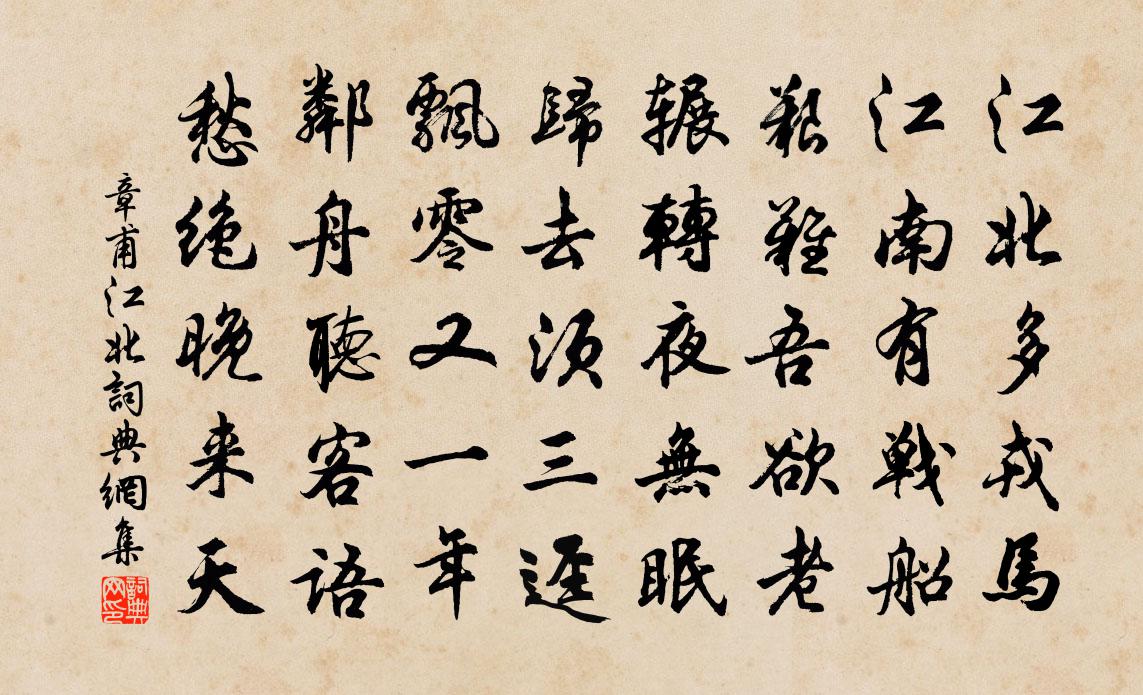 江北多戎馬
江南有戰船
艱難吾欲老
輾轉夜無眠
歸去須三逕
飄零又一年
鄰舟聽客語
愁絶晚来天
章甫江北詞典網集
詞典
网印